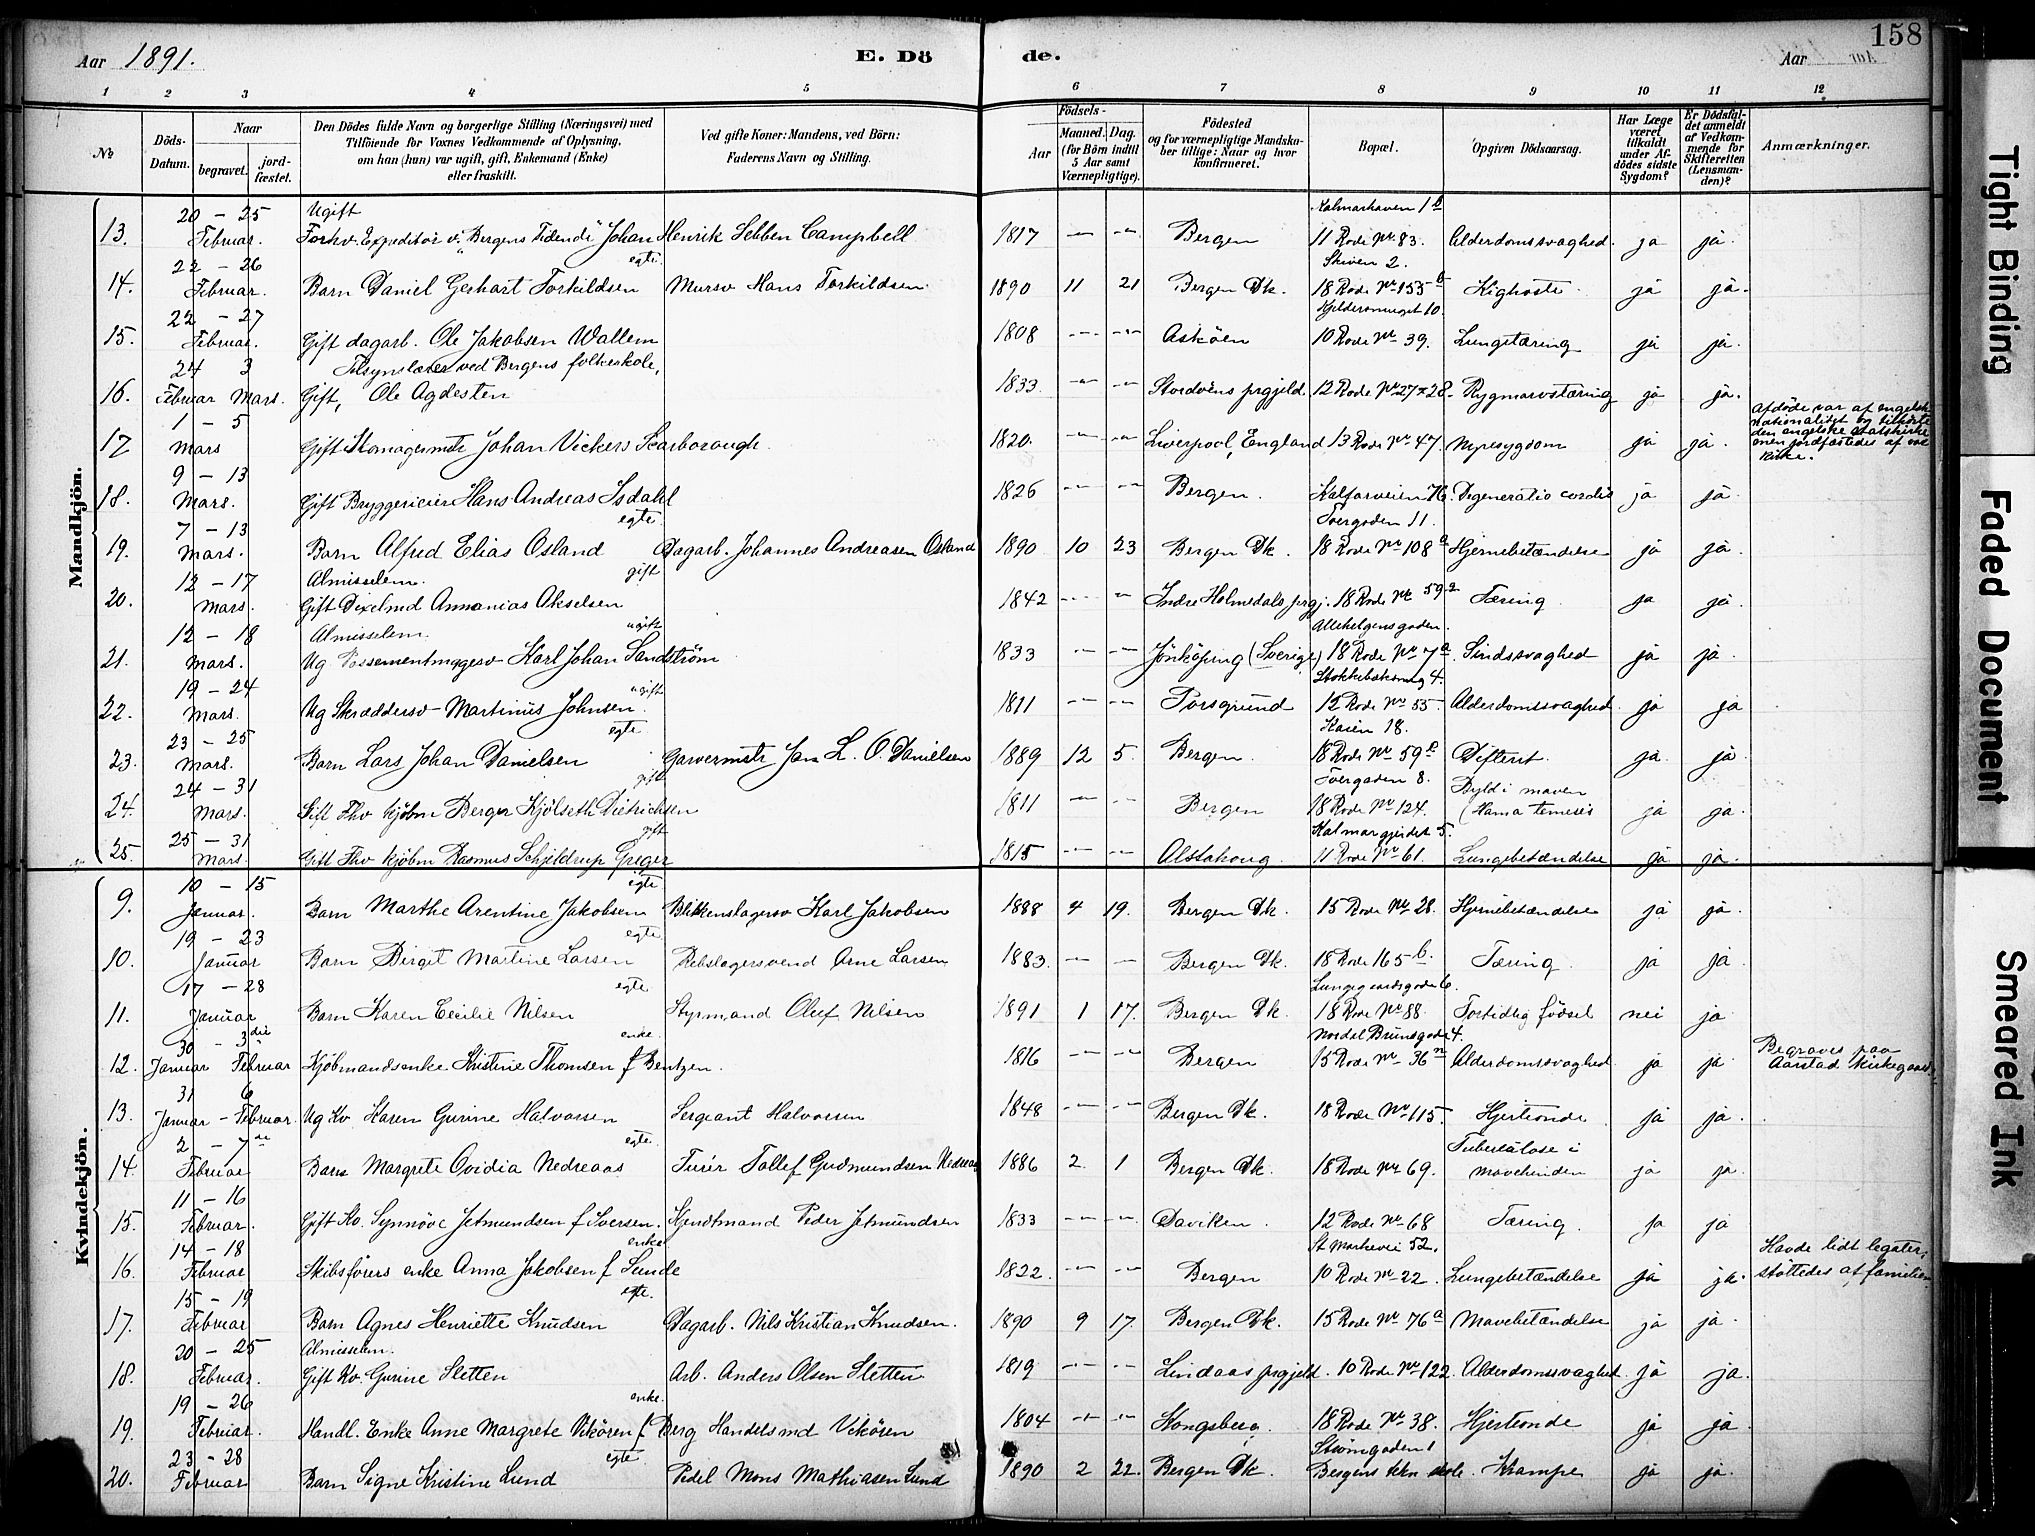 158
Aar 1891. E. Dö de. Aar
1 2 3 4 5 6 7 8 9 10 11 12
№ Döds-Datum. Naar begravet. jordfæstet. Den Dödes fulde Navn og borgerlige Stilling (Næringsvei) med Tilföiende for Voxnes Vedkommende af Oplysning, om han (hun) var ugift, gift, Enkemand (Enke) eller fraskilt. Ved gifte Koner: Mandens, ved Börn: Faderens Navn og Stilling. Födsels- Aar Maaned. Dag. (for Börn indtil 5 Aar samt Værnepligtige). Födested og for værnepligtige Mandskaber tillige: Naar og hvor konfirmeret. Bopæl. Opgiven Dödsaarsag. Har Læge været tilkaldt under Afdödes sidste Sygdom? Er Dödsfaldet anmeldt af Vedkommende for Skifteretten (Lensmanden)? Anmærkninger.
Mandkjön.
13. 20 – 25 Februar. Ugift Forhv. Expeditör v. "Bergens Tidende" Johan Henrik Sebben Campbell 1817 – – Bergen Kalmarhaven 1 b 11 Rode № 83. Alderdomssvaghed. ja ja.
14. 22 – 26 Februar. Barn Daniel Gerhart Torkildsen egte. Mursv Hans Torkildsen. 1890 11 21 Bergen Dk. Skiven 2. 18 Rode № 155 b Kighoste ja ja.
15. 22 – 27 Februar. Gift dagarb. Ole Jakobsen Wallem 1808 – – Askøen Kjeldersmuget 10. 10 Rode № 39. Lungetæring ja ja.
16. 24 Februar 3 Mars. Tilsynslærer ved Bergens folkeskole, Gift, Ole Agdesten 1833 – – Stordøens prgjeld. 12 Rode № 27 & 28. Rygmarvstæring ja ja.
17 1 – 5 Mars Gift Skomagermstr Johan Vickers Scarborough. 1820. – – Liverpool, England 13 Rode № 47. Nyresygdom ja ja. Afdöde var af engelsk nationalitet og tilhörte den engelske statskirke men jordfæstedes af vor kirke.
18. 9 – 13 Mars. Gift Bryggerieier Hans Andreas Isdahl 1826 – – Bergen. Kalfarveien 76. Degeneratio cordis ja ja.
19. 7 – 13 Mars. Barn Alfred Elias Osland egte. Dagarb. Johannes Andreasen Osland 1890 10 23 Bergen Dk. Tvergaden 11. 18 Rode № 108 a Hjernebetændelse ja ja.
20. 12 – 17 Mars. Almisselem. Gift Ananias Akselsen gift 1842 – – Indre Holmedals prgj. 18 Rode № 59 a Tæring. ja ja.
21. 12 – 18 Mars. Almisselem. Ug Possementmagersv Karl Johan Sandström ugift 1833 – – Jönköping (Sverige) Allehelgensgaden. 18 Rode № 7 a Sindssvaghed ja ja.
22. 19 – 24 Mars. Ug Skræddersv – Martinus Johnsen. ugift 1811 – – Porsgrund 4. 12 Rode № 55. Alderdomssvaghed. ja ja
23. 23 – 25 Mars. Barn Lars Johan Danielsen egte. Garvermstr Jan L. O. Danielsen 1889 12 5. Bergen. 18. 18 Rode № 59 e Difterit. ja. ja.
24. 24 – 31 Mars. Gift Fhv kjøbm Berger Kjölseth Dietrichsen gift 1811 – – Bergen Tvergaden 8. 18 Rode № 124. Byld i maven (Hama temesis ja ja.
25. 25 – 31 Mars Gift Fhv kjöbm Rasmus Schjeldrup Greger gift 1815 – – Alstahoug. Kalmargjerdet 5. 11 Rode № 61. Lungebetændelse ja ja.
Kvindekjön.
9. 10 – 15 Januar. Barn Marthe Arentine Jakobsen egte Blikkenslagersv Karl Jakobsen 1888 4 19. Bergen Dk. 15 Rode № 28. Hjernebetændelse ja ja.
10. 19 – 23 Januar Barn Birgit Martine Larsen egte. Rebslagersvend Arne Larsen 1883. – – Bergen Dk. 18 Rode 165 b. Tæring. ja ja.
11. 17 – 28 Januar Barn Karen Cecilie Nilsen egte Styrmand Oluf Nilsen 1891 1 17. Bergen Dk. Lungegaardsgade 6. 18 Rode № 88. Fortidlig födsel nei ja
12. 30 – 3die Januar Februar Kjöbmandsenke Kristine Thomsen f Bentzen. enke. 1816 – – Bergen Nordal Brunsgade 4. 15 Rode № 36 n Alderdomssvaghed. ja ja Begraves paa Aarstad kirkegaard.
13. 31 6 Januar – Februar. Ug Kv Karen Gurine Halvorsen Sergeant Halvorsen 1848 – – Bergen Dk. 18 Rode № 115. Hjerteonde ja ja.
14. 2 – 7de Februar Barn Margrete Ovidia Nedreaas egte. Turér Tollef Gudmundsen Nedreaas 1886 2 1 Bergen Dk. 18 Rode № 69. Tuberkulose i mavehinden ja ja.
15. 11 – 16 Februar. Gift Kv. Synnöve Jetmundsen f Iversen. Kjendtmand Peder Jetmundsen 1833 – – Daviken. 12 Rode № 68 Tæring. ja ja
16. 14 – 18 Februar Skibsförers enke Anna Jakobsen f Sunde enke 1822. – – Bergen St Markevei 52. 10 Rode № 22. Lungebetændelse ja ja. Havde lidt legater, stöttedes af familien
17. 15 – 19 Februar Barn Agnes Henriette Knudsen egte. Dagarb. Nils Kristian Knudsen. 1890 9 17. Bergen Dk. 15 Rode № 76 a Mavebetændelse ja ja.
18. 20 – 25 Februar. Almisselem. Gift Kv. Gurine Sletten Arb. Anders Olsen Sletten 1819 – – Lindaas prgjeld. 10 Rode № 122. Alderdomssvaghed. ja ja.
19. 19 – 26 Februar. Handl. Enke Anne Margrete Vikören f Berg enke. Handelsmd Vikören 1804 – – Kongsberg. 18 Rode № 38. Hjerteonde ja ja.
20. 23 – 28 Februar Barn Signe Kristine Lund egte. Pedel Mons Mathiasen Lund 1890 2 22. Bergen Dk. Strömgaden 1 Bergens tekn skole. Krampe ja ja.
Tight Binding
Faded Document
Smeared Ink